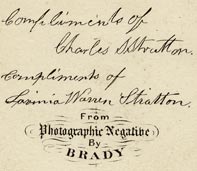 Compliments of
Charles S Stratton.
Compliments of
Lavinia Warren Stratton.
From
Photographic Negative
By
BRADY